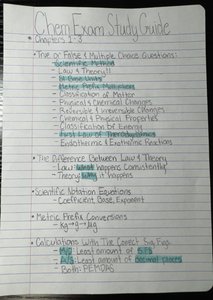 Chem Exam Study Guide
• Chapters 1-3
• True or False & Multiple Choice Questions:
- Scientific Method
- Law & Theory!!
- SI Base Units
- Metric Prefix Multipliers
- Classification of Matter
- Physical & Chemical Changes
- Reversible & Irreversible Changes
- Chemical & Physical Properties
- Classification of Energy
- First Law of Thermodynamics
- Endothermic & Exothermic Reactions
• The Difference Between Law & Theory
- Law: What happens Consistently
- Theory: Why it happens
• Scientific Notation Equations
- Coefficient, Base, Exponent
• Metric Prefix Conversions
- Kg → g → μg
• Calculations With The Correct Sig Figs
- M/D: Least amount of S.F.s
- A/S: Least amount of decimal places
- Both: PEMDAS